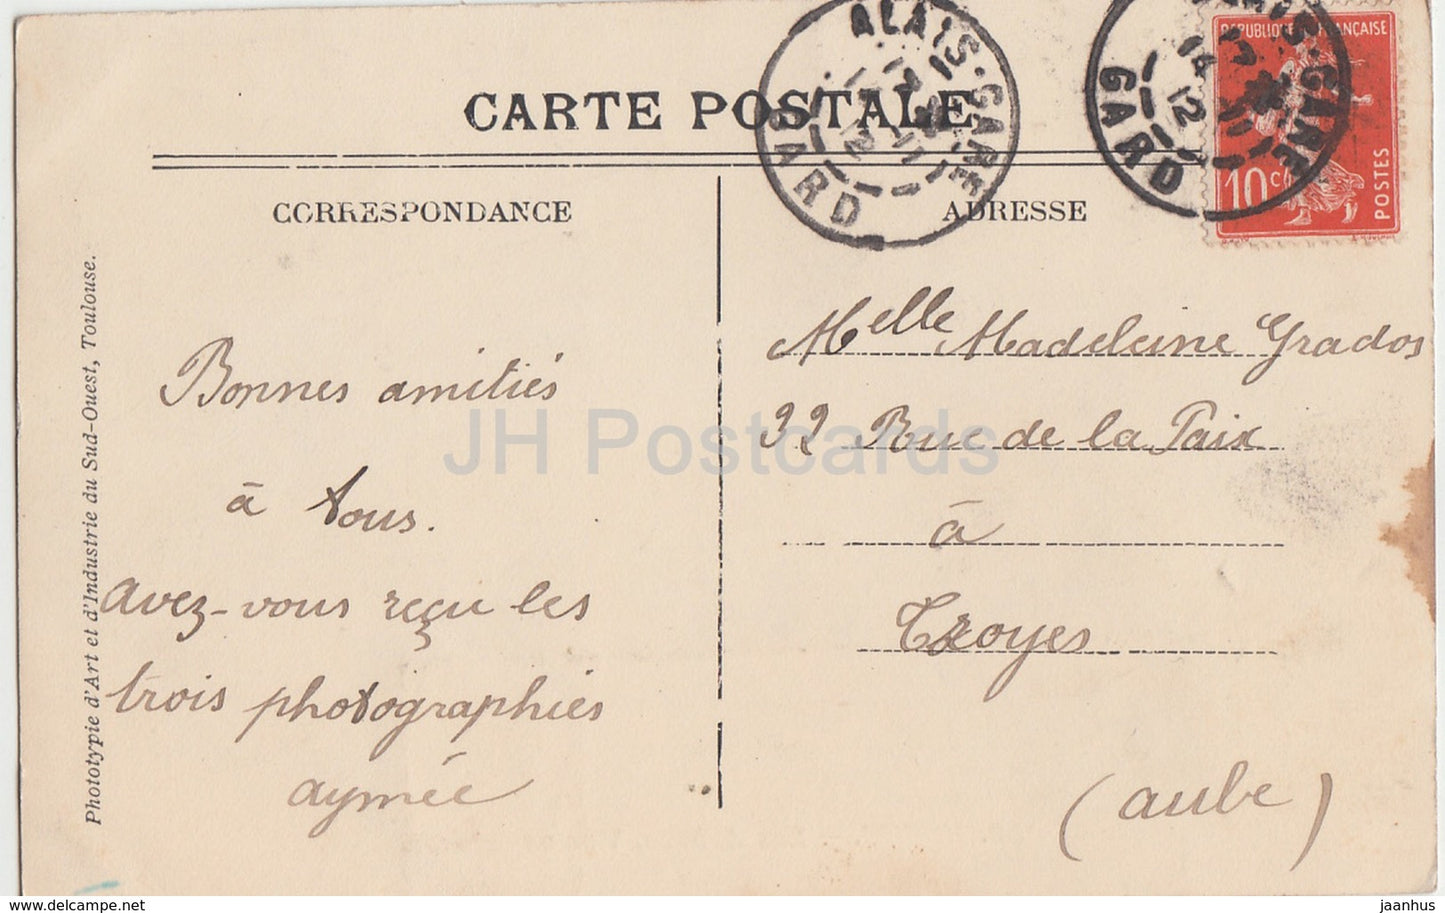 CARTE POSTALE
CORRESPONDANCE
ADRESSE
ALAIS-GARE
GARD
GARD
REPUBLIQUE FRANÇAISE
10c
POSTES
Phototypie d'Art et d'Industrie du Sud-Ouest, Toulouse.
Bonnes amitiés
à tous.
avez-vous reçu les
trois photographies
aymée
Melle Madeleine Grados
32 Rue de la Paix
à
Troyes
(aube)
JH Postcards
jaanhus